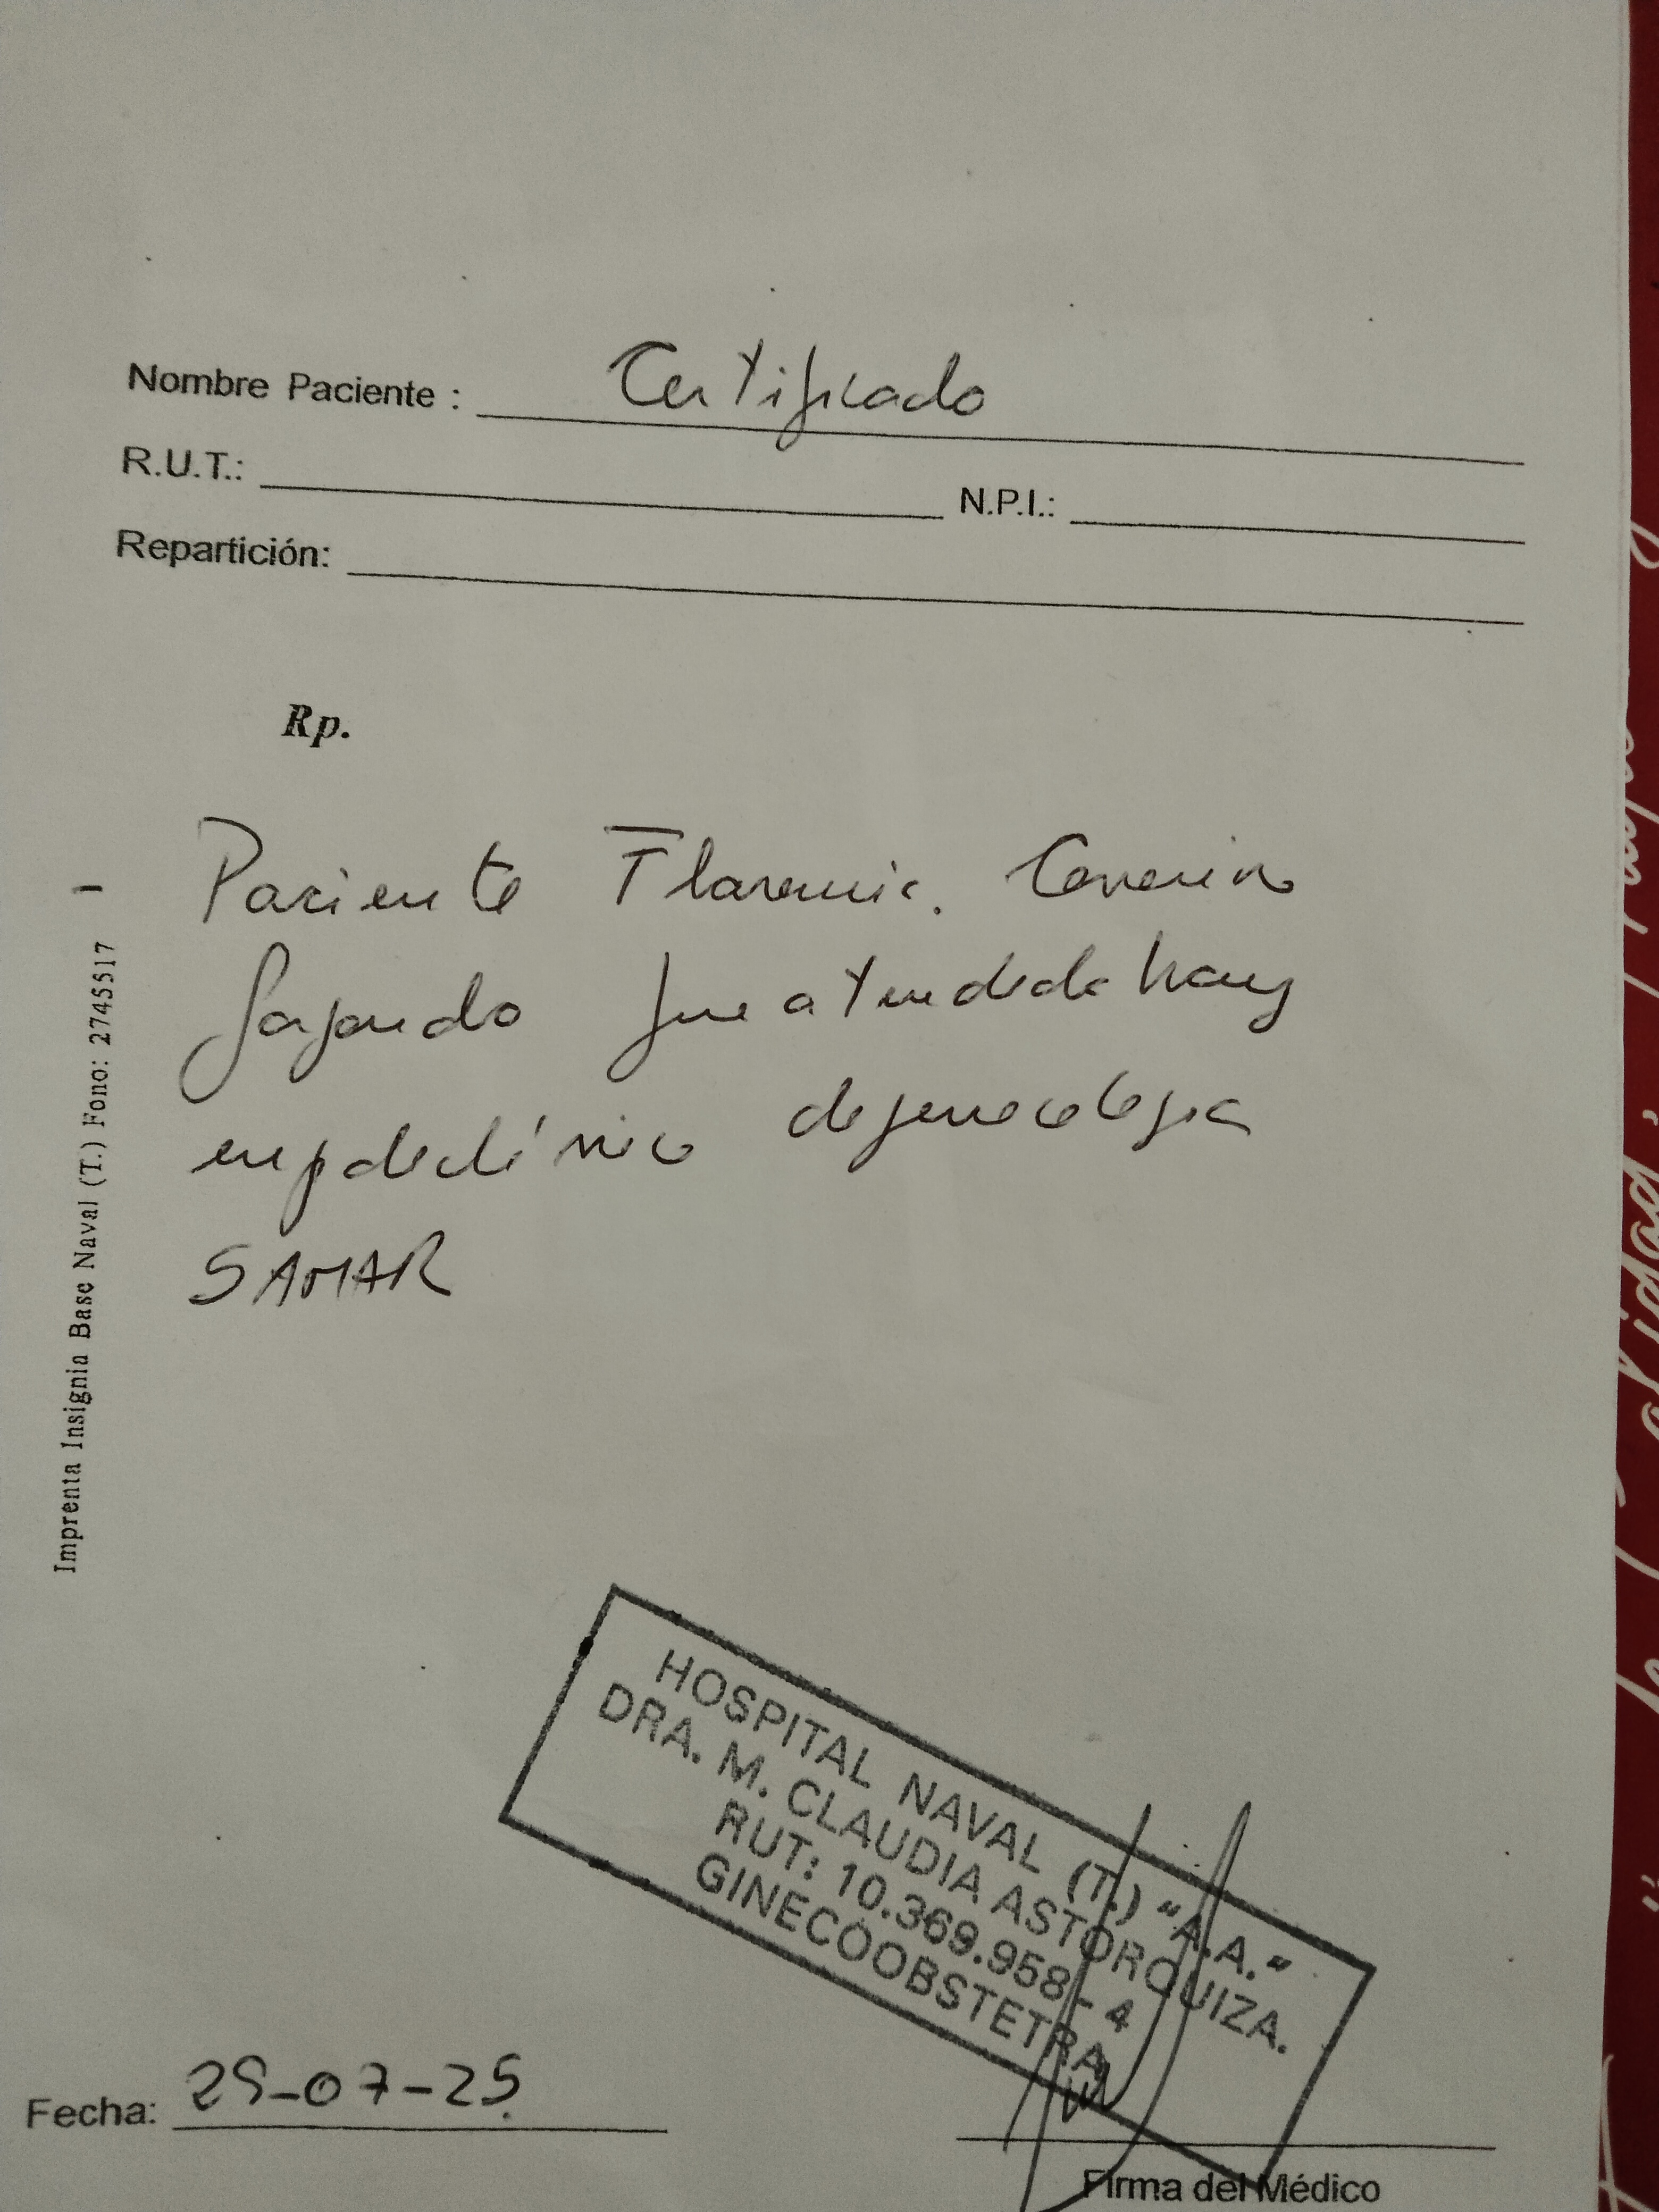 Nombre Paciente : Certificado
R.U.T.: N.P.I.:
Repartición:
Rp.
Paciente Florencia
fue atendida hoy
en policlínico de ginecologia
SAMAR
Imprenta Insignia Base Naval (T.) Fono: 2745517
HOSPITAL NAVAL (T.) "A.A."
DRA. M. CLAUDIA ASTORQUIZA.
RUT: 10.369.958-4
GINECOOBSTETRA
Fecha: 25-07-25
Firma del Médico